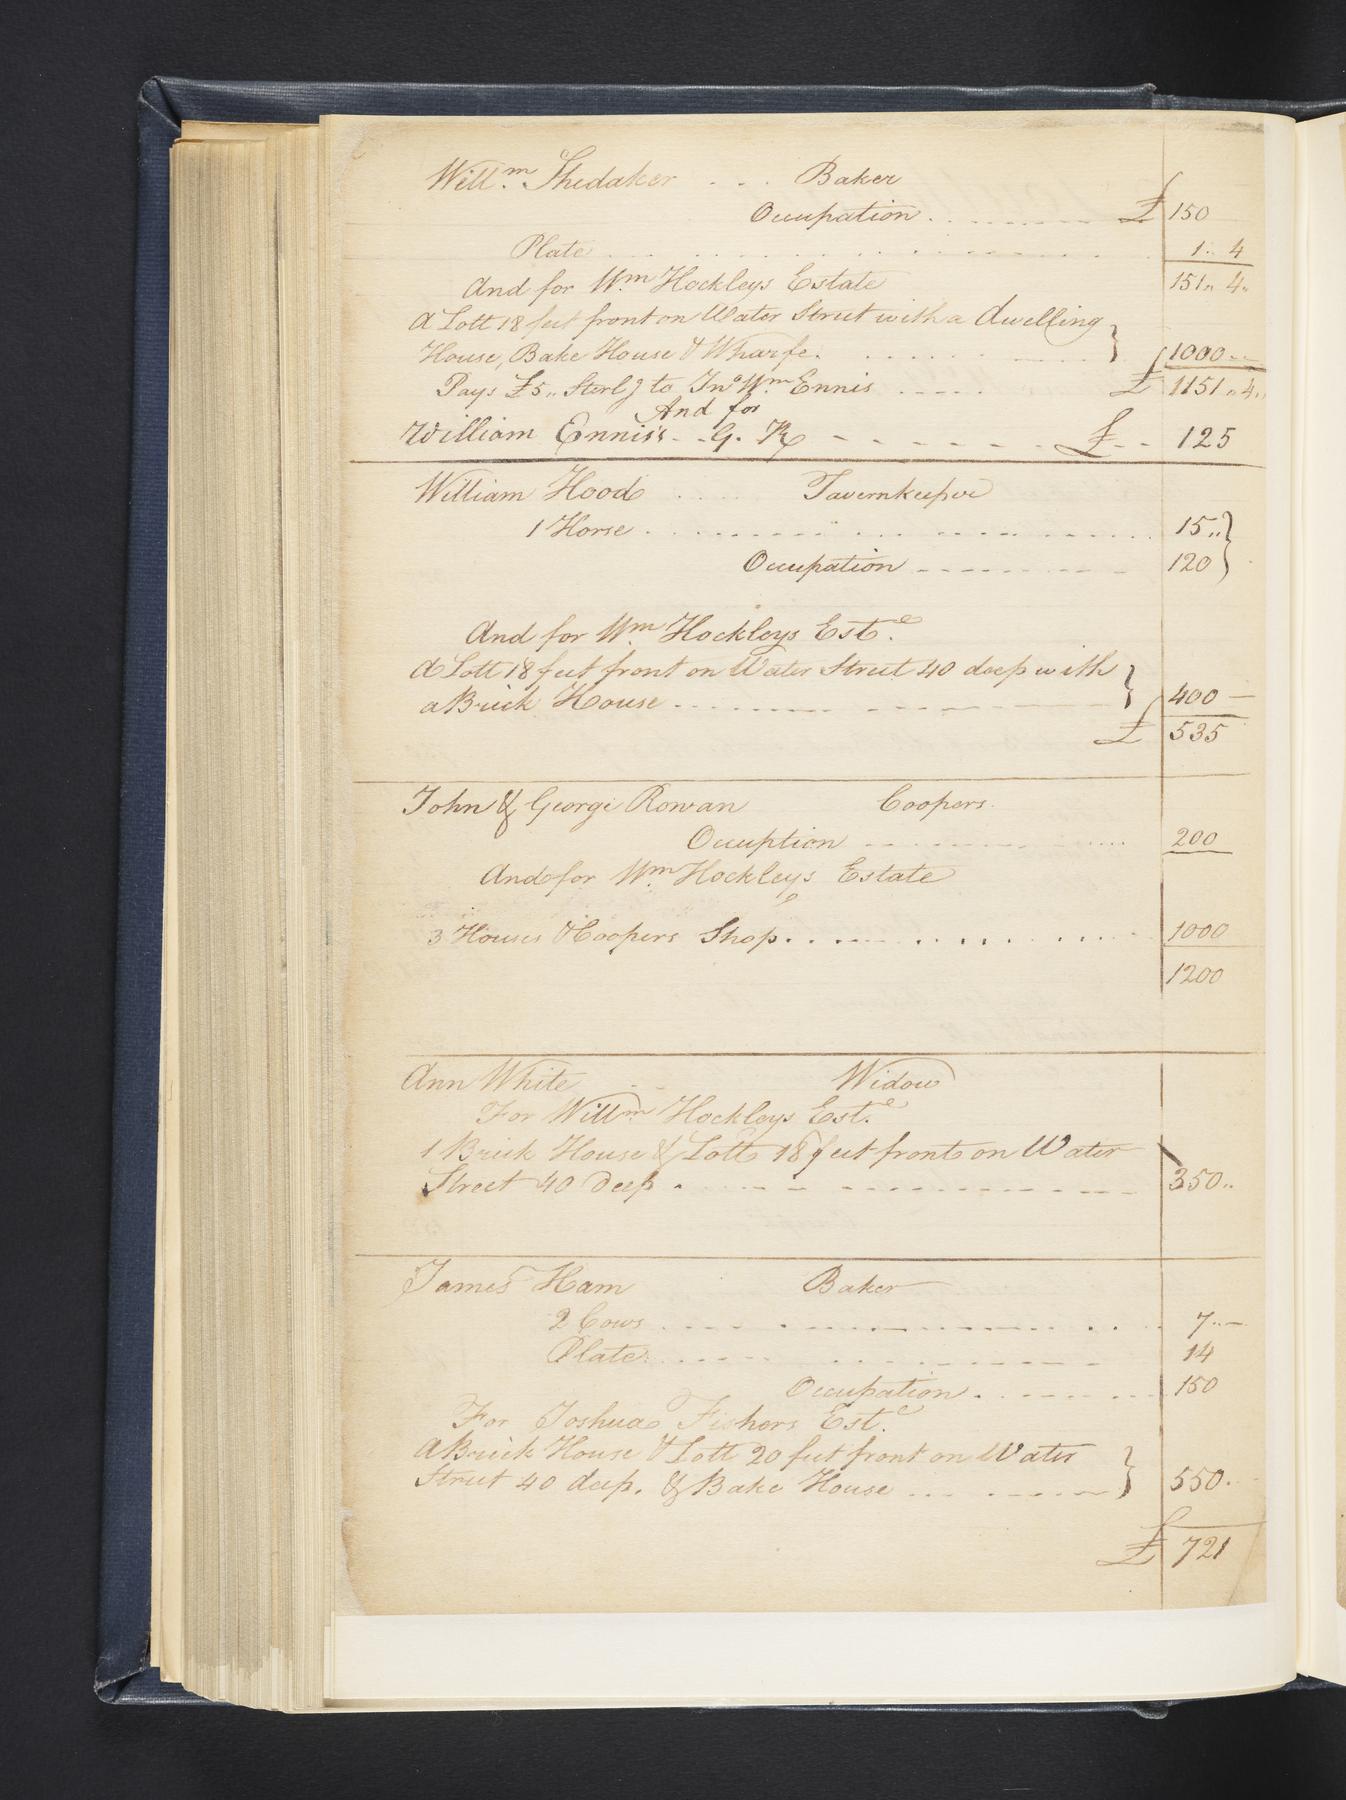 Will.m Shedaker . . . Baker
Occupation . . . . . . £ 150
Plate . . . . . . 1 .. 4
And for Wm Hockleys Estate 151 .. 4 ..
A Lott 18 feet front on Water Street with a dwelling
House, Bake House & Wharfe. . . . . . 1000 --
Pays £5 .. Sterlg to Jno Wm Ennis . . . . £ 1151 .. 4 ..
And for
William Ennis's - - G. R - - - - - - £ - - 125
William Hood . . . . Tavernkeeper
1 Horse . . . . . . 15 ..
Occupation - - - - - - 120
And for Wm Hockleys Est.e
A Lott 18 feet front on Water Street 40 deep with
a Brick House . . . . . . 400 —
£ 535
John & George Rowan Coopers
Occuption - - - - - - 200
And for Wm Hockleys Estate
3 Houses & Coopers Shop . . . . . . 1000
1200
Ann White - - Widow
For Willm Hockleys Est.e
1 Brick House & Lott 18 feet front on Water
Street 40 deep . - - - - - - 350 ..
James Ham Baker
2 Cows . . . . . . 7 .. —
Plate . . . . . . 14
Occupation . . . . . . 150
For Joshua Fishers Est.e
A Brick House & Lott 20 feet front on Water
Street 40 deep. & Bake House . . . . . . 550 .
£ 721